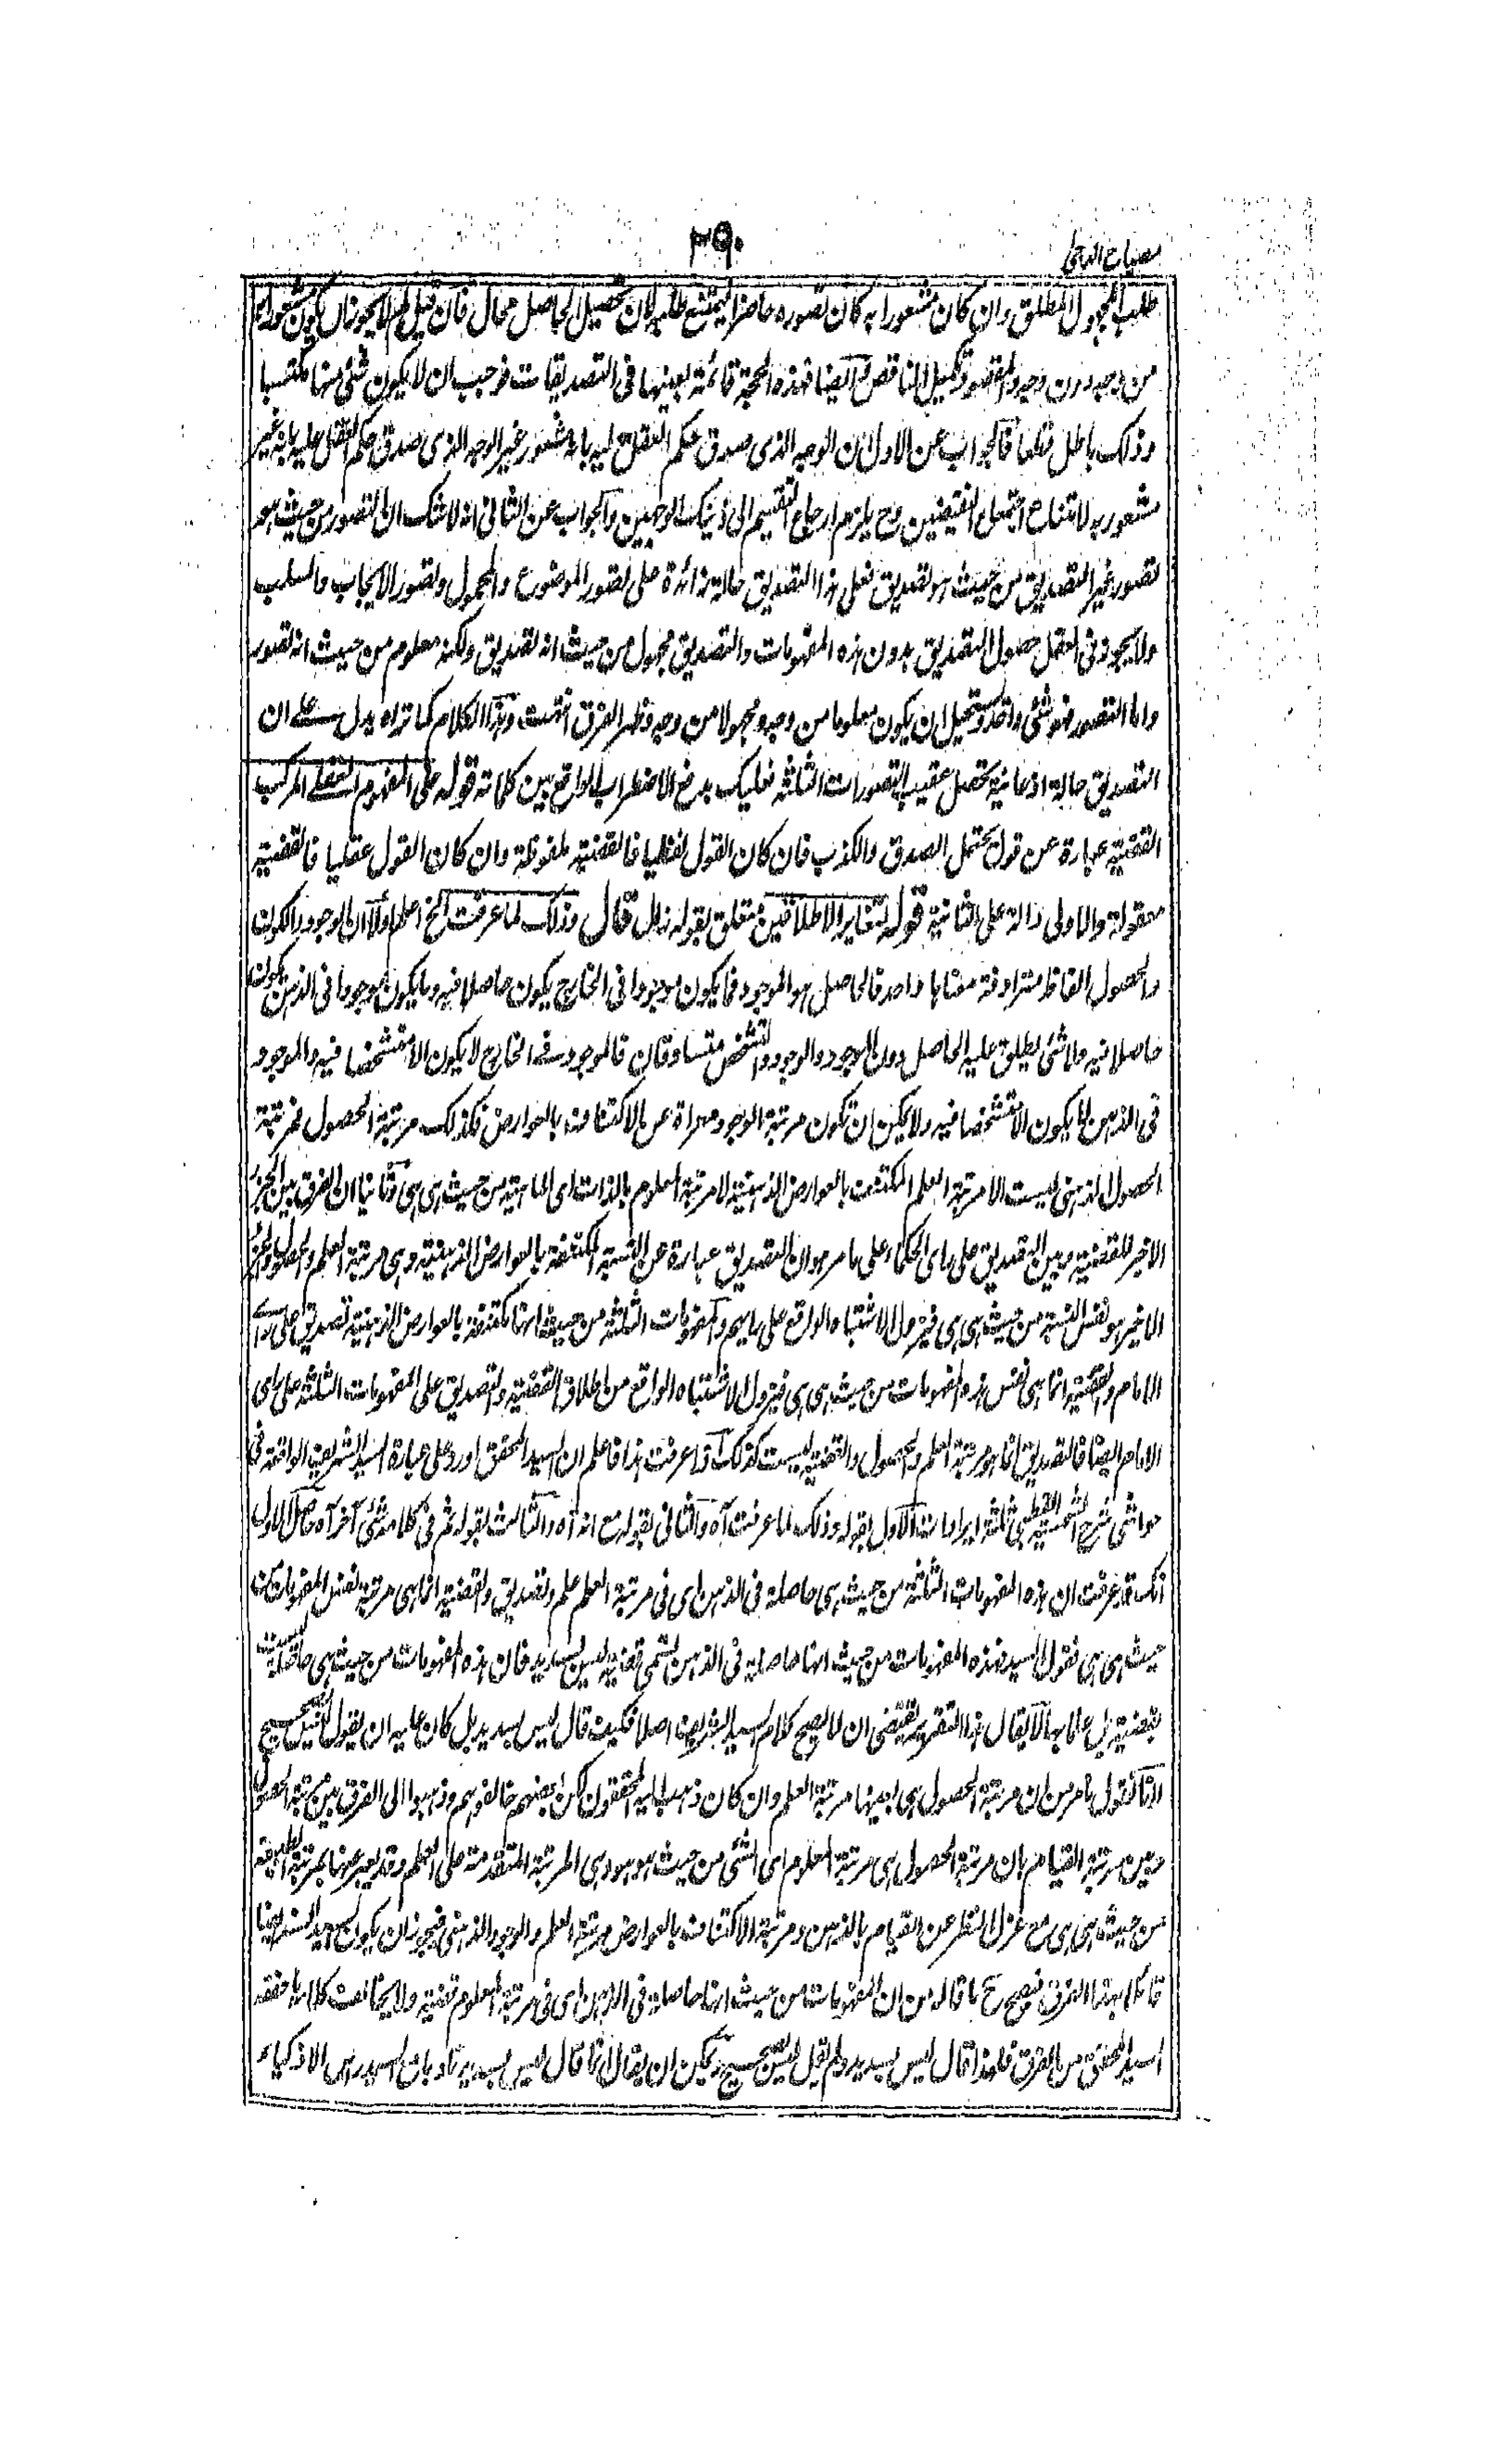 مصباح الدجى
٣٩٠
طلب المجهول المطلق وان كان مشعورا به كان تصوره حاضرا فيمتنع طلبه لان تحصيل الحاصل محال فان قيل لم لا يجوز ان يكون مشعورا به
من وجه دون وجه والمقصود تكميل الناقص قلنا ايضا فهذه الحجة قائمة بعينها فى التصديقات فوجب ان لا يكون شئ منها مكتسبا
وذلك باطل قطعا فالجواب عن الاول ان الوجه الذى صدق حكم العقل عليه بانه مشعور غير الوجه الذى صدق حكم العقل عليه بانه غير
مشعور به لامتناع اجتماع النقيضين وح يلزم ارجاع التقسيم الى ذينك الوجهين والجواب عن الثانى انه لا شك ان التصور من حيث هو
تصور غير التصديق من حيث هو تصديق فعلى هذا التصديق حالة زائدة على تصور الموضوع والمحمول وتصور الايجاب والسلب
ولا يجوز فى العقل حصول التصديق بدون هذه المفهومات والتصديق مجهول من حيث انه تصديق ولكنه معلوم من حيث انه تصور
واما التصور فهو شئ واحد ويستحيل ان يكون معلوما من وجه ومجهولا من وجه وظهر الفرق انتهت وهذا الكلام كما تراه يدل على ان
التصديق حالة اذعانية تحصل عقيب التصورات الثلثة فعليك بدفع الاضطراب الواقع بين كلماته قوله على المفهوم العقلى المركب
القضية عبارة عن قول يحتمل الصدق والكذب فان كان القول لفظيا فالقضية ملفوظة وان كان القول عقليا فالقضية
معقولة والاولى دالة على الثانية قوله لتغاير الاطلاقين متعلق بقوله زال قال وذلك لما عرفت الخ اعلم اولا ان الوجود والكون
والحصول الفاظ مترادفة معناها واحد فالحاصل هو الموجود فما يكون موجودا فى الخارج يكون حاصلا فيه وما يكون موجودا فى الذهن يكون
حاصلا فيه ولا شئ يطلق عليه الحاصل دون الوجود والوجود والتشخص متساوقان فالموجود فى الخارج لا يكون الا متشخصا فيه والموجود
فى الذهن لا يكون الا متشخصا فيه ولا يمكن ان تكون مرتبة الوجود معراة عن الاكتناف بالعوارض فكذلك مرتبة الحصول فمرتبة
الحصول الذهنى ليست الا مرتبة العلم المكتنف بالعوارض الذهنية لا مرتبة المعلوم بالذات اى الماهية من حيث هى هى وثانيا ان الفرق بين الجزء
الاخير للقضية وبين التصديق على راى الحكماء على ما مر هو ان التصديق عبارة عن النسبة المكتنفة بالعوارض الذهنية وهى مرتبة العلم والحصول والجزء
الاخير هو نفس النسبة من حيث هى هى فيزول الاشتباه الواقع على رايهم والمفهومات الثلثة من حيث انها مكتنفة بالعوارض الذهنية تصديق على راى
الامام والقضية انما هى نفس هذه المفهومات من حيث هى هى فيزول الاشتباه الواقع من اطلاق القضية والتصديق على المفهومات الثلثة على راى
الامام ايضا فالتصديق انما هو مرتبة العلم والحصول والقضية ليست كذلك اذا عرفت هذا فاعلم ان السيد المحقق اورد على عبارة السيد الشريف الواقعة فى
حواشى شرح الشمسية القطبى ثلثة ايرادات الاول بقوله وذلك لما عرفت آه والثانى بقوله مع انه آه والثالث بقوله ثم فى كلامه شئ آخر آه حاصل الاول
انك قد عرفت ان هذه المفهومات الثلثة من حيث هى حاصلة فى الذهن اى فى مرتبة العلم علم وتصديق والقضية انما هى مرتبة نفس المفهومات من
حيث هى هى فقول السيد فهذه المفهومات من حيث انها حاصلة فى الذهن تسمى قضية ليس بسديد فان هذه المفهومات من حيث هى حاصلة ليست
بقضية بل علما بها لا يقال هذا التقرير يقتضى ان لا يصح كلام السيد الشريف اصلا فكيف قال ليس بسديد بل كان عليه ان يقول ليس بصحيح
لانا نقول ما مر من ان مرتبة الحصول هى بعينها مرتبة العلم وان كان ذهب اليه المحققون لكن بعضهم خالفوهم وذهبوا الى الفرق بين مرتبة الحصول
وبين مرتبة القيام بان مرتبة الحصول هى مرتبة المعلوم اى الشئ من حيث هو هو وهى المرتبة المتقدمة على العلم وقد يعبر عنها بمرتبة الطبيعة
من حيث هى هى مع عزل النظر عن القيام بالذهن ومرتبة الاكتناف بالعوارض مرتبة العلم والوجود الذهنى فيجوز ان يكون السيد السند ايضا
قائلا بهذا الفرق فيصح ح ما قاله من ان المفهومات من حيث انها حاصلة فى الذهن اى فى مرتبة المعلوم قضية ولا يخالف كلامه ما حققه
السيد المحقق من الفرق فلهذا قال ليس بسديد ولم يقل ليس بصحيح ويمكن ان يقال انما قال ليس بسديد تادبا من السيد راس الاذكياء